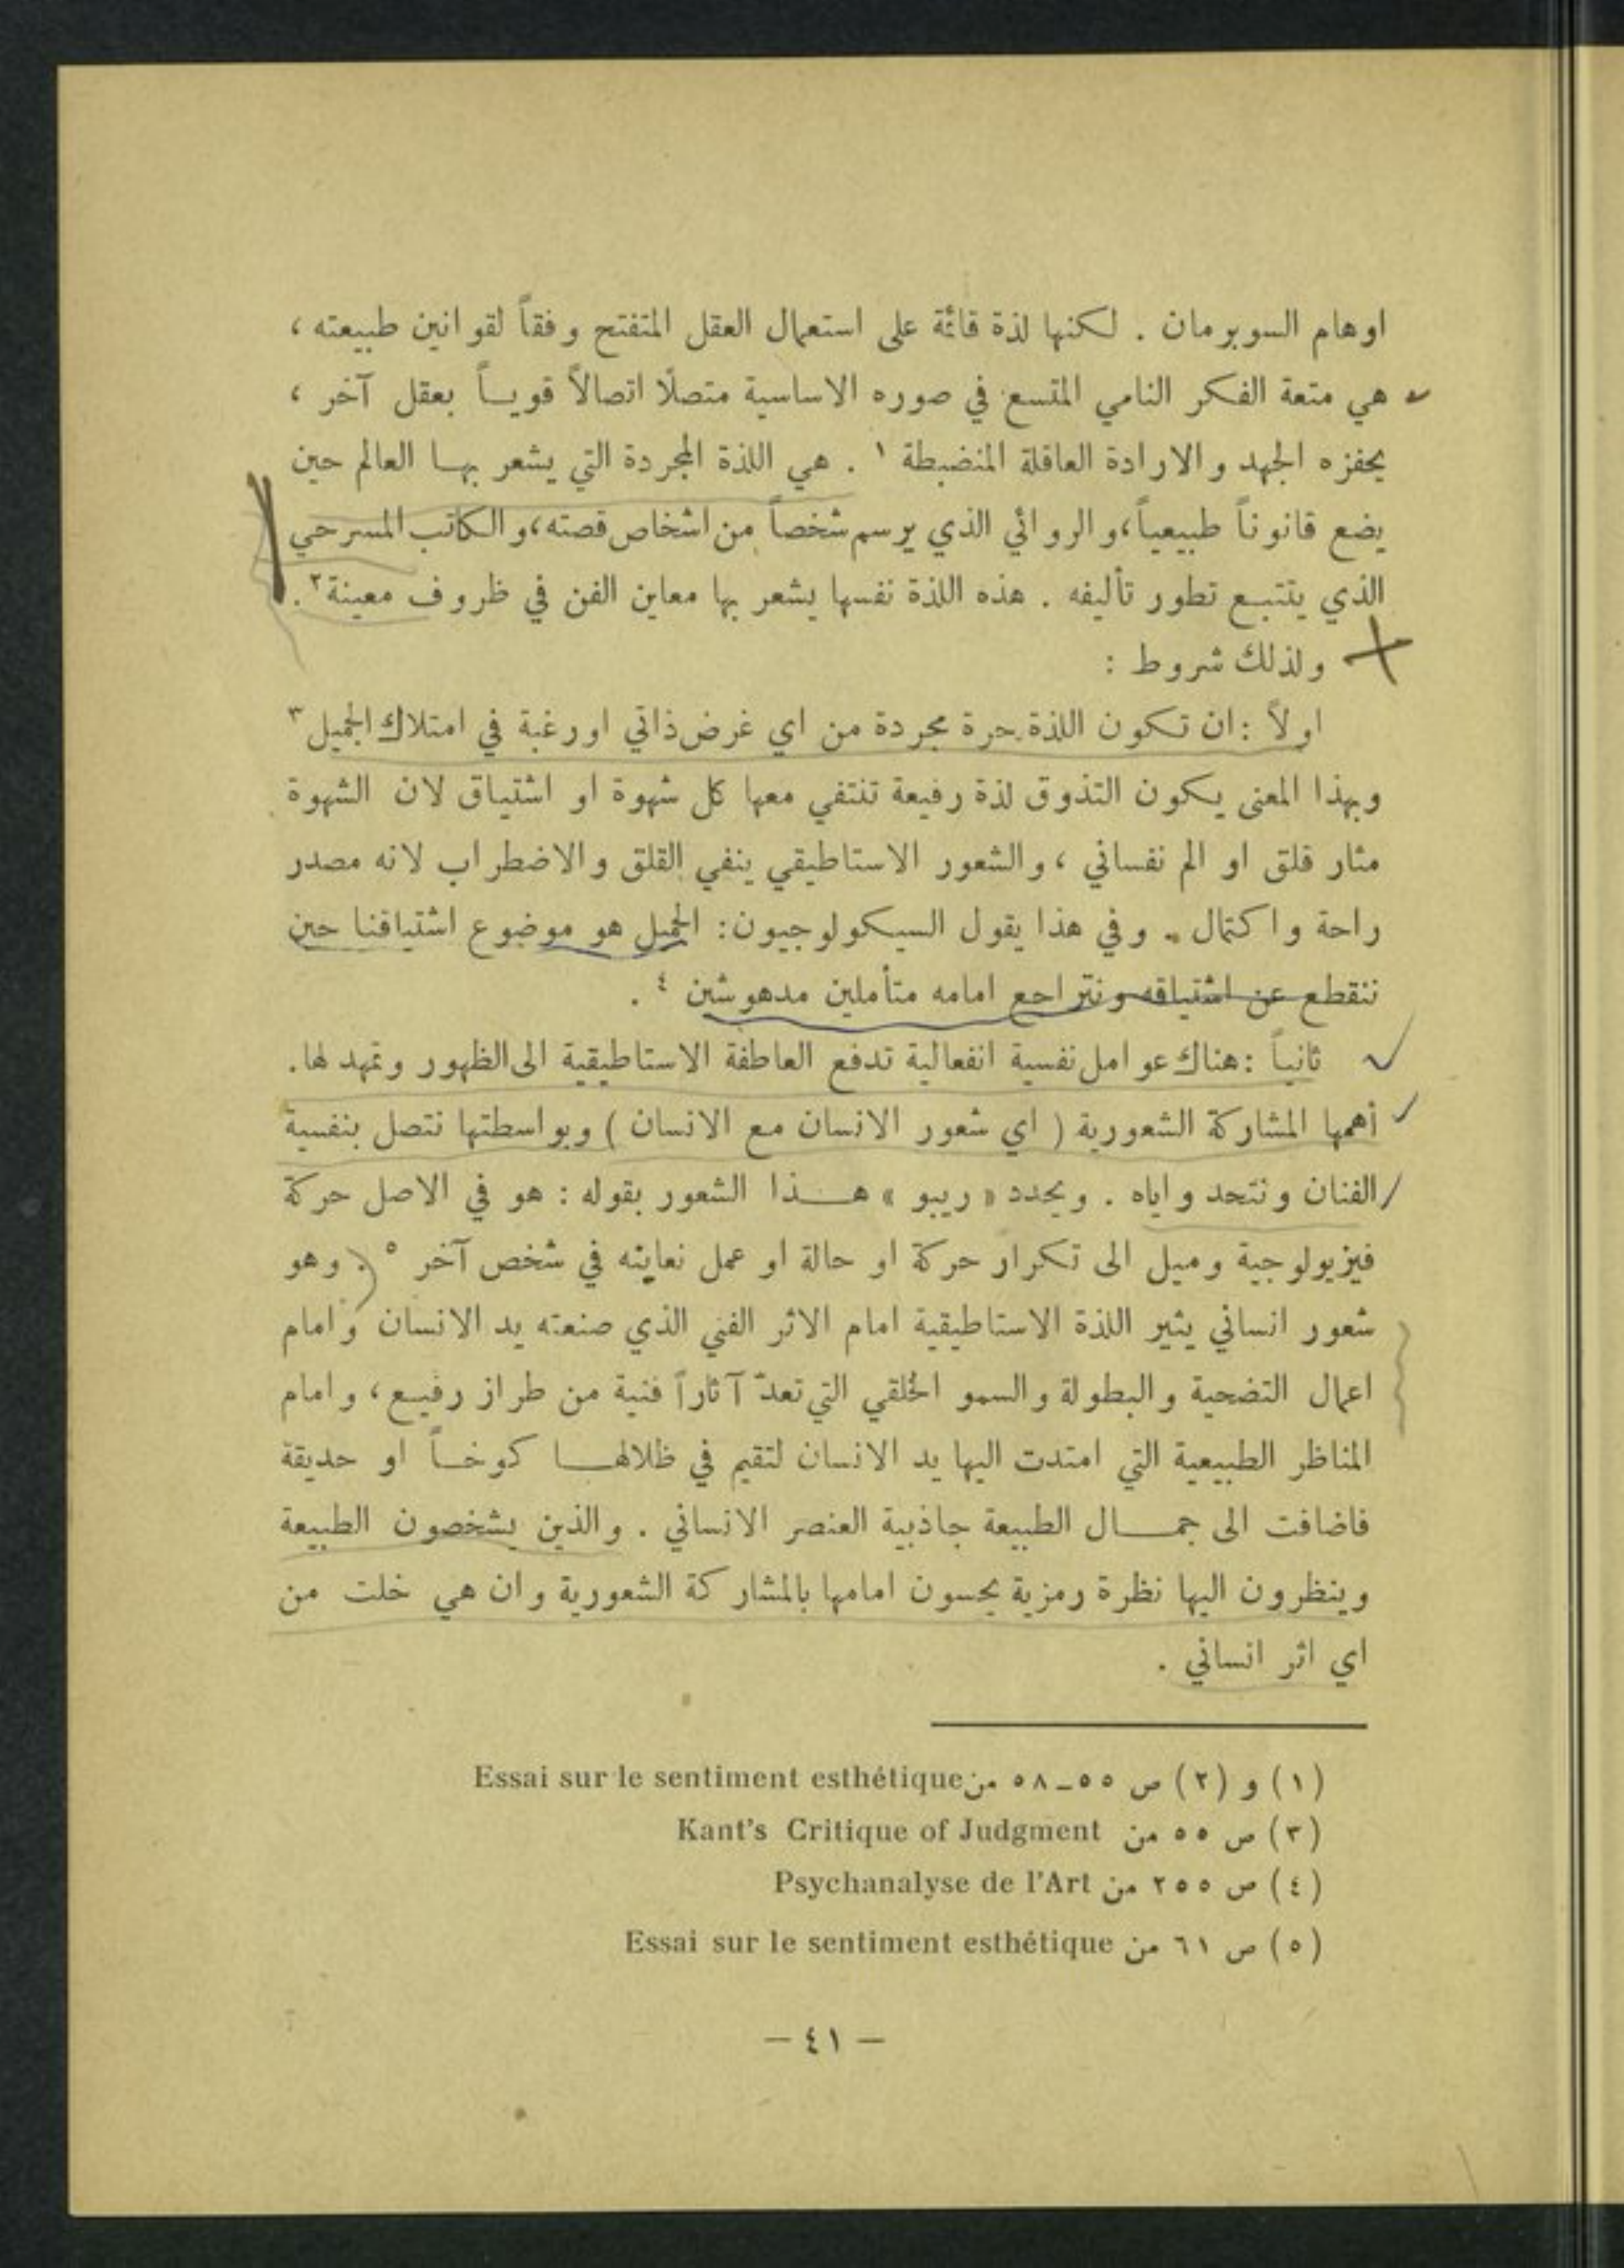 اوهام السوبرمان . لكنها لذة قائمة على استعمال العقل المتفتح وفقاً لقوانين طبيعته ،
هي متعة الفكر النامي المتسع في صوره الاساسية متصلًا اتصالاً قويــاً بعقل آخر ،
يحفزه الجهد والارادة العاقلة المنضبطة ١ . هي اللذة المجردة التي يشعر بهــا العالم حين
يضع قانوناً طبيعياً،والروائي الذي يرسم شخصاً من اشخاص قصته،والكاتب المسرحي
الذي يتتبــع تطور تأليفه . هذه اللذة نفسها يشعر بها معاين الفن في ظروف معينة ٢ .
ولذلك شروط :
اولاً : ان تكون اللذة حرة مجردة من اي غرض ذاتي او رغبة في امتلاك الجميل ٣
وبهذا المعنى يكون التذوق لذة رفيعة تنتفي معها كل شهوة او اشتياق لان الشهوة
مثار قلق او الم نفساني ، والشعور الاستاطيقي ينفي القلق والاضطراب لانه مصدر
راحة واكتمال . وفي هذا يقول السيكولوجيون : الجميل هو موضوع اشتياقنا حين
ننقطع عن اشتياقه ونتراجع امامه متأملين مدهوشين ٤ .
ثانياً : هناك عوامل نفسية انفعالية تدفع العاطفة الاستاطيقية الى الظهور وتمهد لها .
أهمها المشاركة الشعورية ( اي شعور الانسان مع الانسان ) وبواسطتها نتصل بنفسية
الفنان ونتحد واياه . ويحدد « ريبو » هــذا الشعور بقوله : هو في الاصل حركة
فيزيولوجية وميل الى تكرار حركة او حالة او عمل نعاينه في شخص آخر ٥ . وهو
شعور انساني يثير اللذة الاستاطيقية امام الاثر الفني الذي صنعته يد الانسان وامام
اعمال التضحية والبطولة والسمو الخلقي التي تعدّ آثاراً فنية من طراز رفيــع ، وامام
المناظر الطبيعية التي امتدت اليها يد الانسان لتقيم في ظلالهــا كوخــاً او حديقة
فاضافت الى جمــال الطبيعة جاذبية العنصر الانساني . والذين يشخصون الطبيعة
وينظرون اليها نظرة رمزية يحسون امامها بالمشاركة الشعورية وان هي خلت من
اي اثر انساني .
(١) و (٢) ص ٥٥ــ٥٨ من Essai sur le sentiment esthétique
(٣) ص ٥٥ من Kant's Critique of Judgment
(٤) ص ٢٥٥ من Psychanalyse de l'Art
(٥) ص ٦١ من Essai sur le sentiment esthétique
— ٤١ —